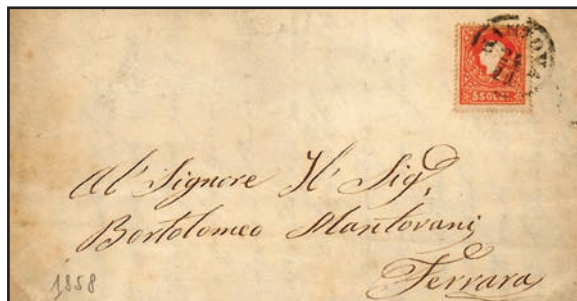 5 SOLDI
MANTOVA
Al' Signore Il' Sig.
Bortolomeo Mantovani
Ferrara
1858